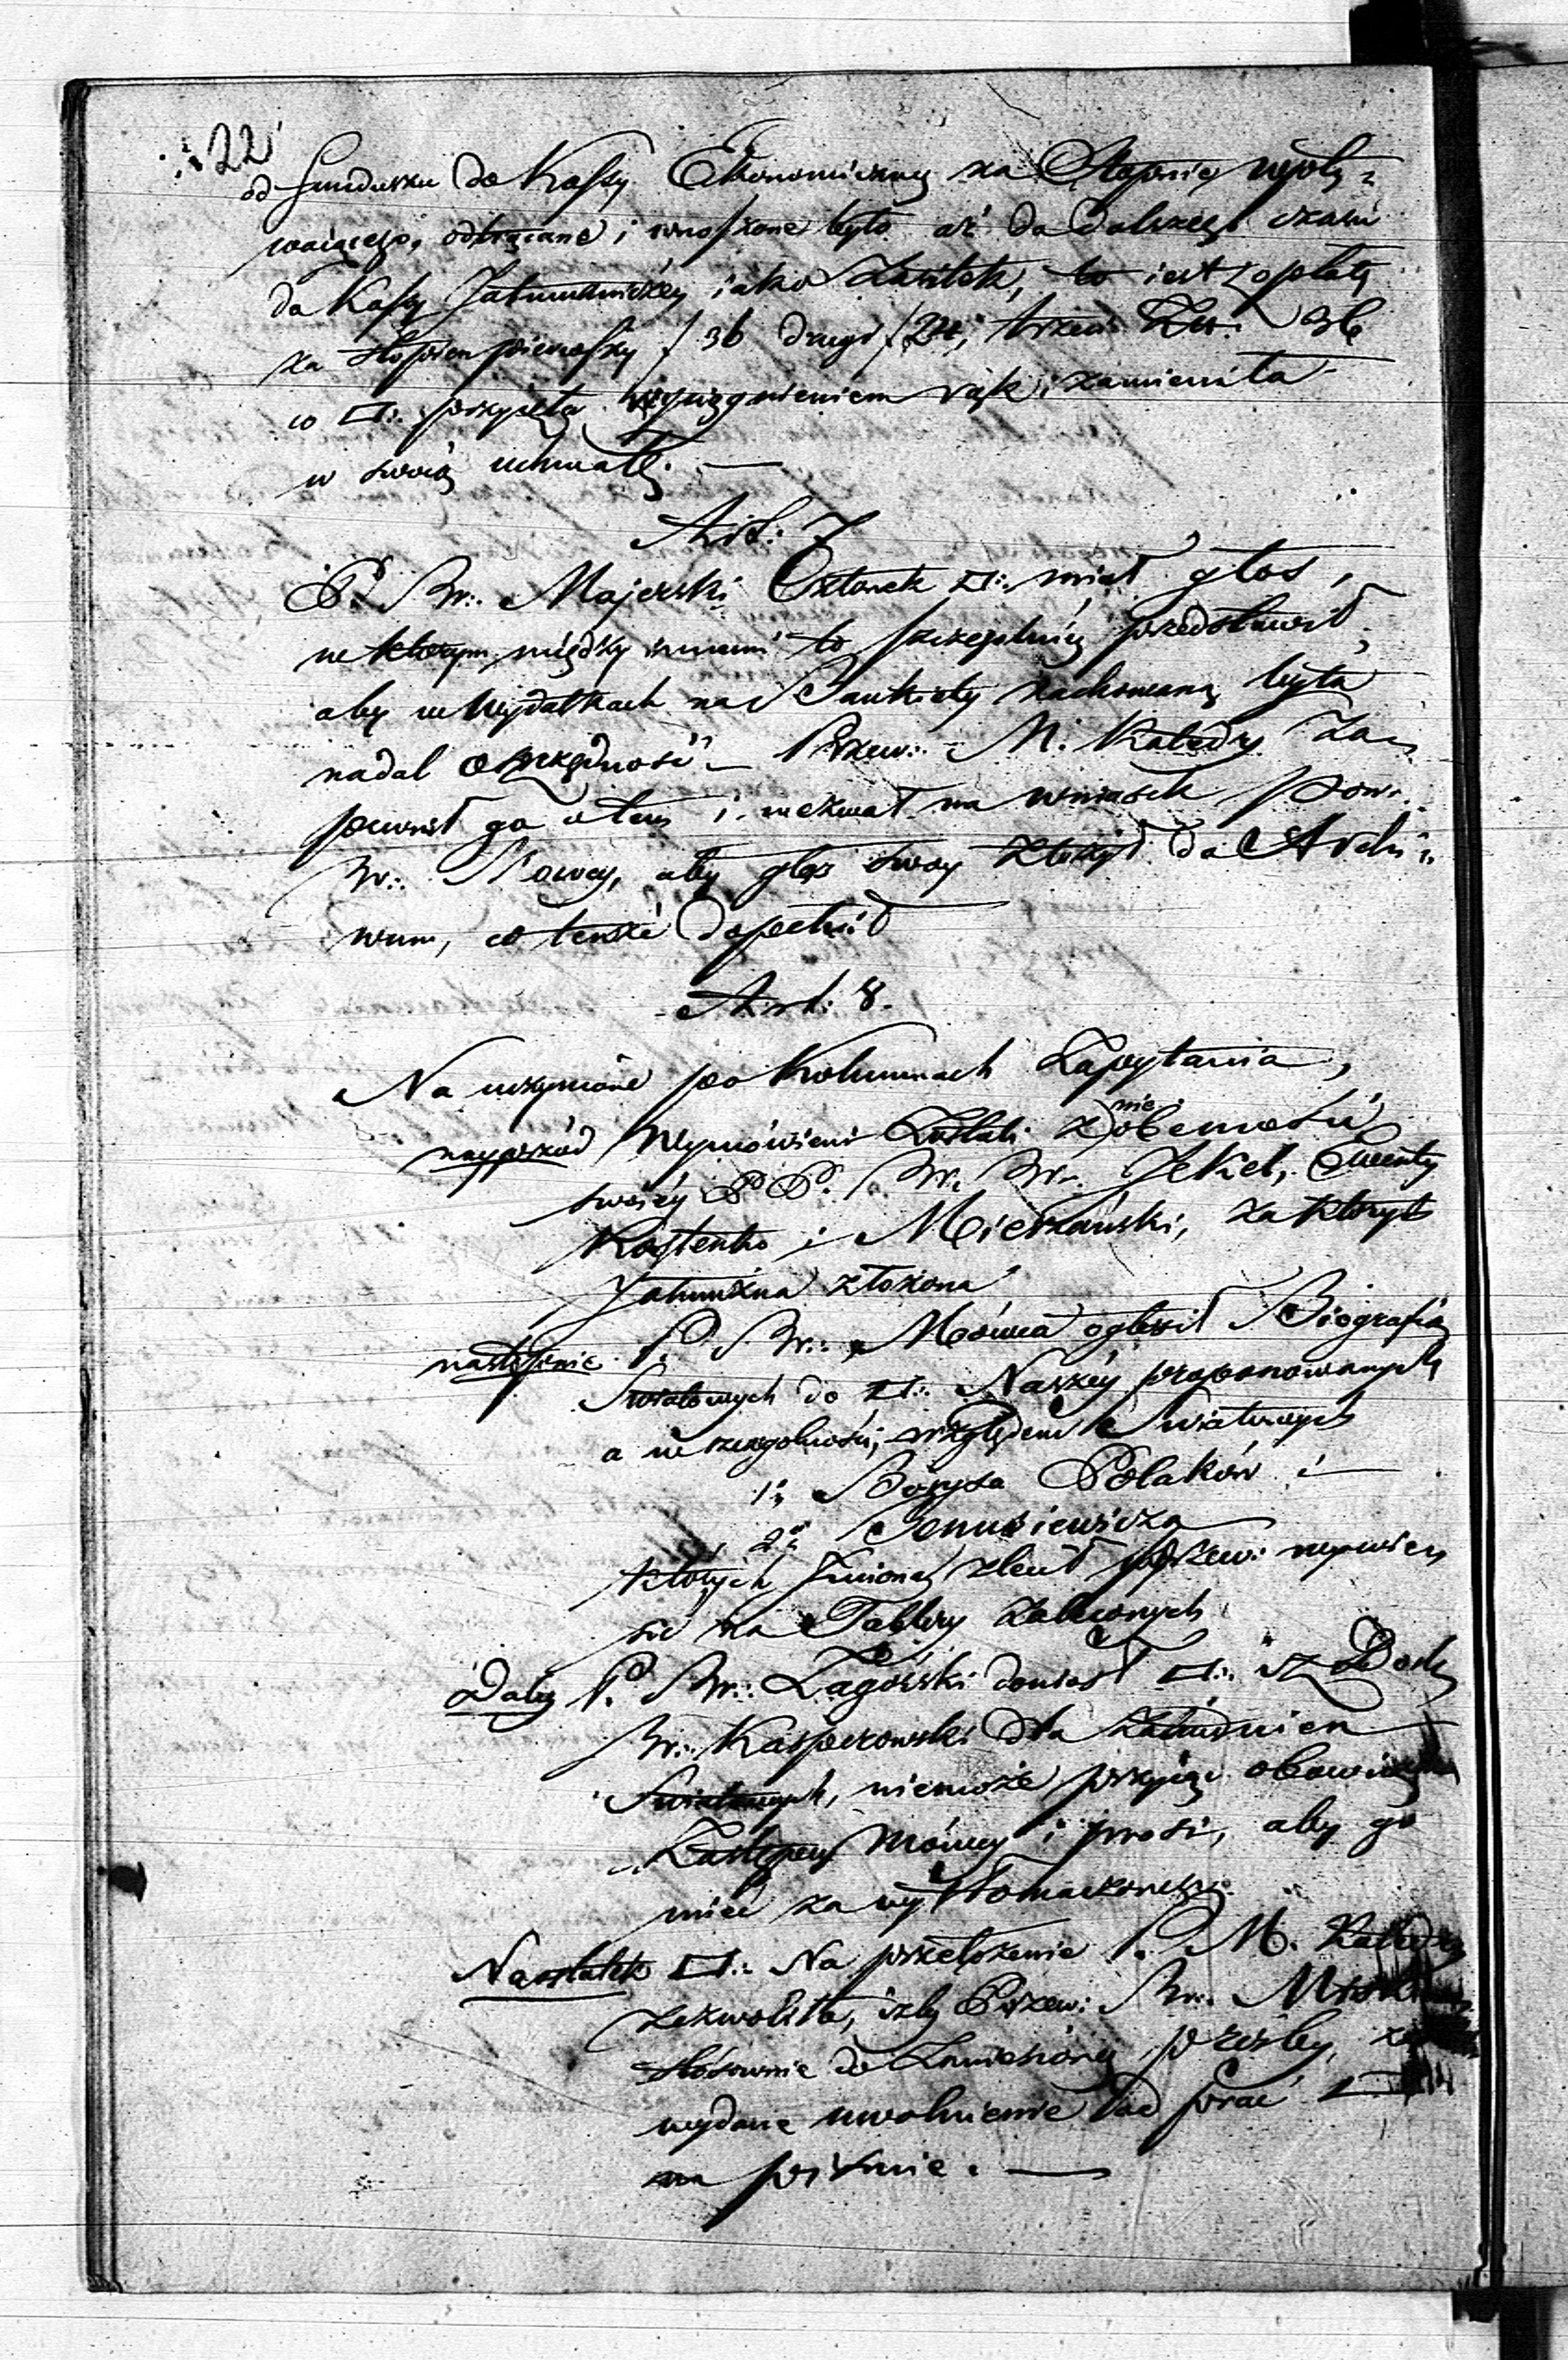 22
od Funduszu do Kassy Ekonomiczney za Stopnie wpły-
waiącego, odtrącane i wnoszone było aż do dalszego czasu
do Kassy Jałmużniczey iako Zasiłek, to iest z opłaty
za stopien pierwszy f 36 drugi f 24, trzeci 36
w □∴ przyięła wyciągnieniem rąk i zamieniła
w swoią uchwałę. —
Art: 7
P. Br∴ Majerski Członek □∴ miał głos,
w ktorym między innemi to szczegulniey przedstawił,
aby w wydatkach na Bankiety zachowaną była
nadal oszczędność – Przew∴ M. Katedry Za-
pewnił go o tem i wezwał na wniosek Pow∴
Br∴ Mowcy, aby głos swoy złożył do Archi-
wum, co tenże dopełnił
Art: 8.
Na uczynione po Kolumnach Zapytania,
nayprzód Wymówieni Zostali z nieobecności
swoiéy P. P. Br. Br. Jekel,
Kostenko i Mierzański, za ktorych
Jałmużna złożona
następnie P. Br∴ Mówca ogłosił Biografią
Swiatowych do □∴ Naszéy proponowanych
a w szczegolności, względem Swiatowych
1. Borysa Polaków i
2. Benusiewicza
których Imiona zlecił Przew: wypisać
się na Tablicy Zaleconych
Daley P. Br∴ Zagórski doniosł □∴ iż
Br∴ Kasperowski dla zatrudnien
Swiatowych, niemoże przyiąć obowiązku
Zastępcy Mówcy i prosi, aby go
mieć za wytłomaczonego.
Naostatek □∴ Na przełożenie P. M. Katedry
zezwoliła, iżby Przew: Br∴
stosownie do Zaniesioney prośby,
wydane uwolnienie od prac □
na piśmie. —